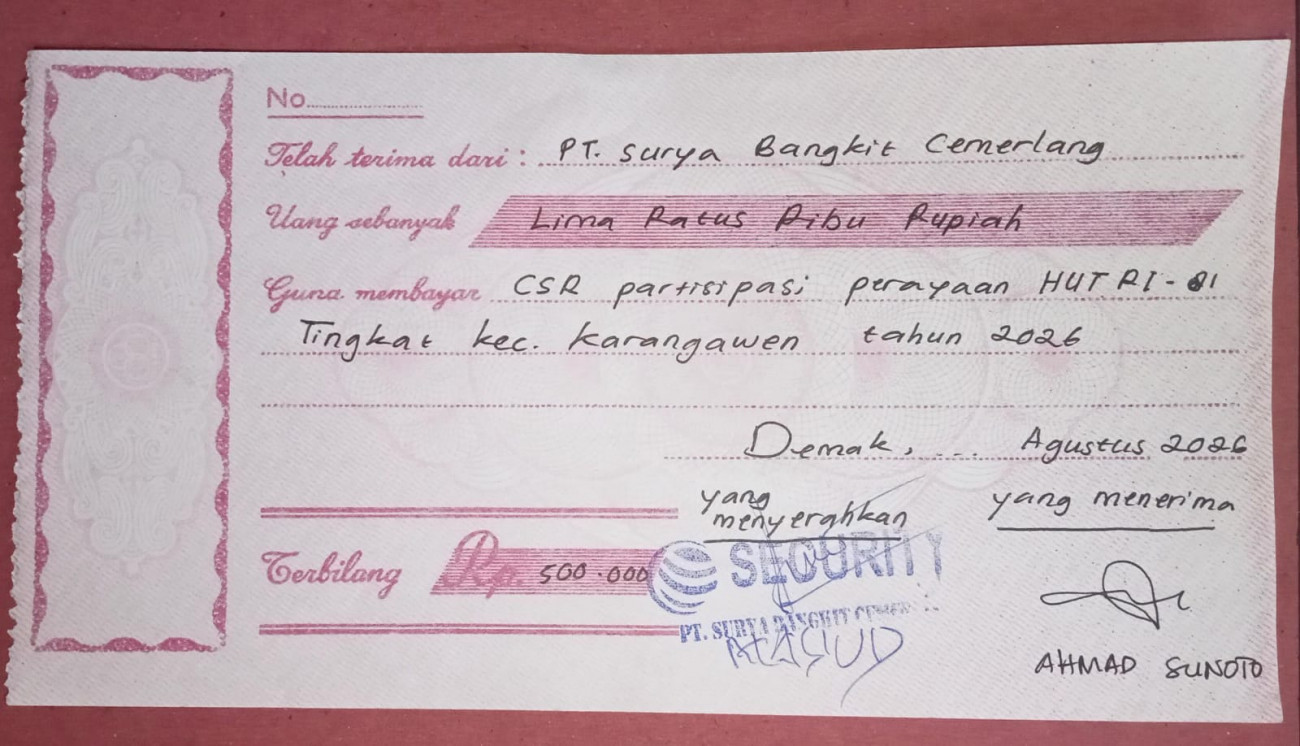 No.
Telah terima dari : PT. Surya Bangkit Cemerlang
Uang sebanyak Lima Ratus Ribu Rupiah
Guna membayar CSR partisipasi perayaan HUT RI - 81
Tingkat kec. Karangawen tahun 2026
Demak, ... Agustus 2026
yang menyerahkan
yang menerima
Terbilang Rp. 500.000
SECURITY
PT. SURYA BANGKIT CEMER
AHMAD SUNOTO